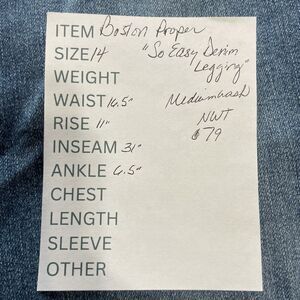 ITEM Boston Proper
SIZE 14 "So Easy Denim
Legging"
WEIGHT
WAIST 16.5" Mediumwash
RISE 11" NWT
INSEAM 31" $79
ANKLE 6.5"
CHEST
LENGTH
SLEEVE
OTHER